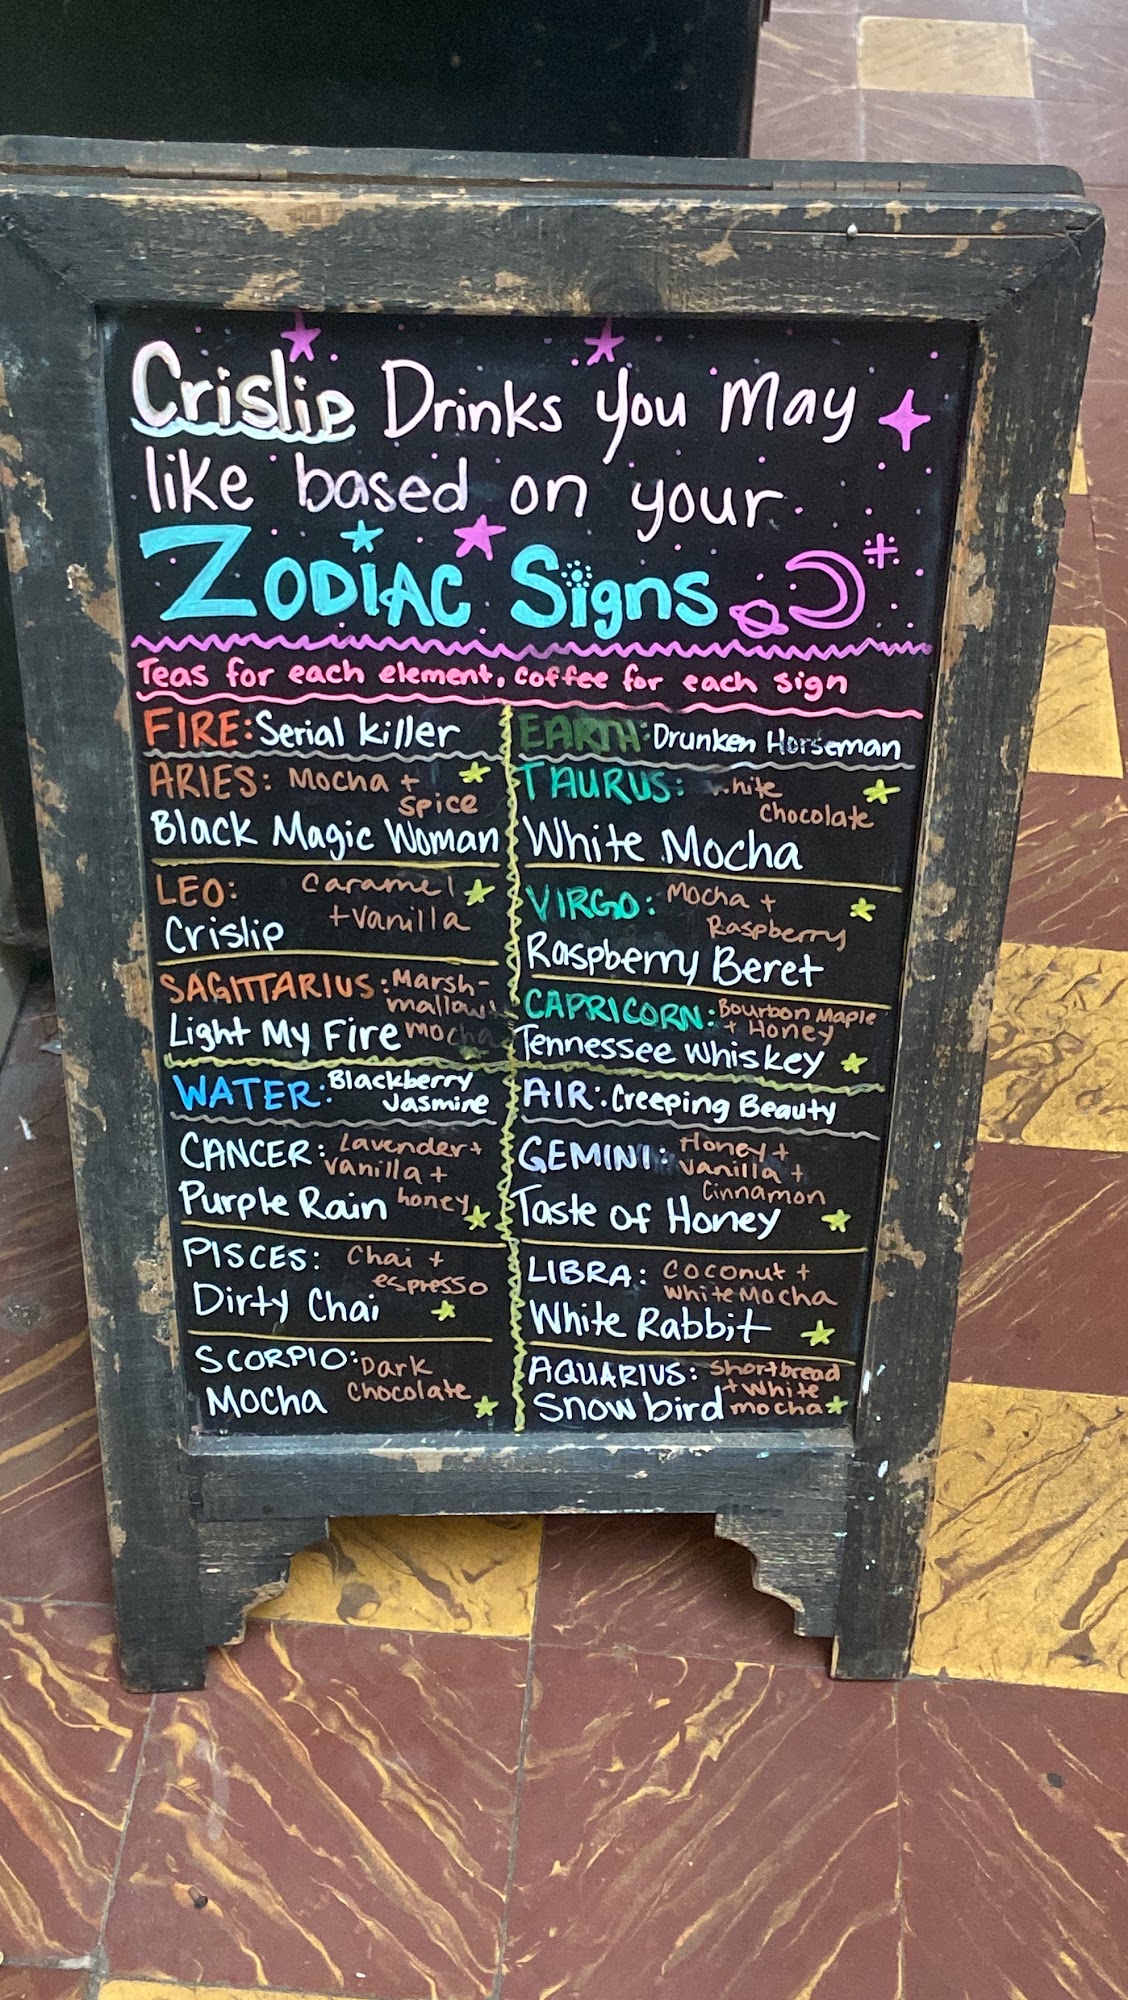 Crislip Drinks you may
like based on your
ZODIAC Signs
Teas for each element, coffee for each sign
FIRE: Serial killer
ARIES: Mocha +
spice
Black Magic Woman
LEO: Caramel
+ vanilla
Crislip
SAGITTARIUS: Marsh-
mallow
Light My Fire mocha
WATER: Blackberry
Jasmine
CANCER: Lavender +
vanilla +
Purple Rain honey
PISCES: Chai +
espresso
Dirty Chai
SCORPIO: Dark
Mocha Chocolate
EARTH: Drunken Horseman
TAURUS: White
Chocolate
White Mocha
VIRGO: Mocha +
Raspberry
Raspberry Beret
CAPRICORN: Bourbon Maple
+ Honey
Tennessee Whiskey
AIR: Creeping Beauty
GEMINI: Honey +
vanilla +
Cinnamon
Taste of Honey
LIBRA: Coconut +
White Mocha
White Rabbit
AQUARIUS: Shortbread
+ White
Snowbird mocha